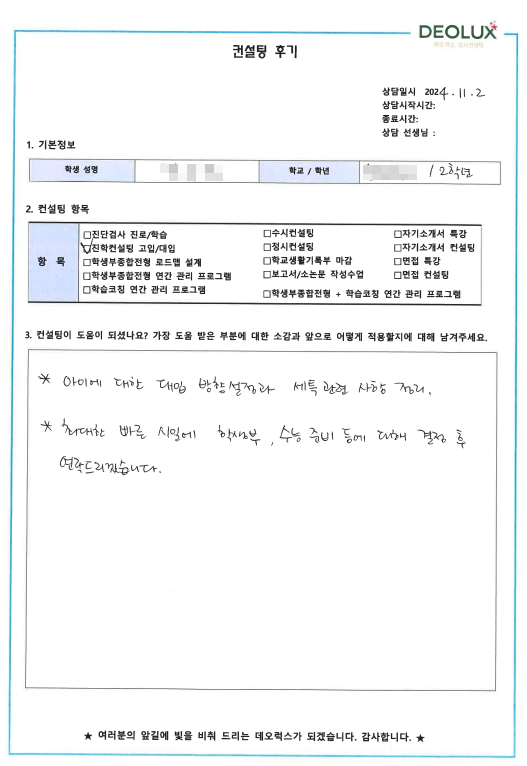 DEOLUX
컨설팅 후기
상담일시 2024. 11. 2
상담시작시간:
종료시간:
상담 선생님 :
1. 기본정보
학생 성명 학교 / 학년 / 2학년
2. 컨설팅 항목
항 목
□진단검사 진로/학습 □수시컨설팅 □자기소개서 특강
☑진학컨설팅 고입/대입 □정시컨설팅 □자기소개서 컨설팅
□학생부종합전형 로드맵 설계 □학교생활기록부 마감 □면접 특강
□학생부종합전형 연간 관리 프로그램 □보고서/소논문 작성수업 □면접 컨설팅
□학습코칭 연간 관리 프로그램 □학생부종합전형 + 학습코칭 연간 관리 프로그램
3. 컨설팅이 도움이 되셨나요? 가장 도움 받은 부분에 대한 소감과 앞으로 어떻게 적용할지에 대해 남겨주세요.
* 아이에 대한 대입 방향설정과 세특관련 사항 정리.
* 최대한 빠른 시일에 학생부, 수능 준비 등에 대해 결정 후
연락드리겠습니다.
★ 여러분의 앞길에 빛을 비춰 드리는 데오럭스가 되겠습니다. 감사합니다. ★